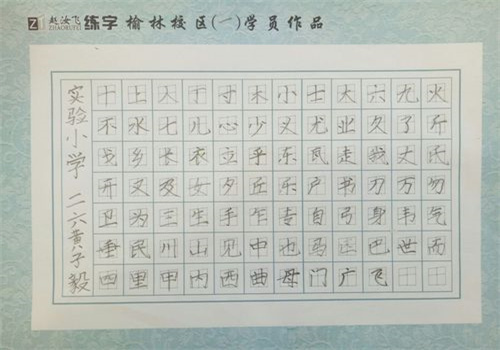 赵汝飞 练字 榆林校区(一)学员作品
ZHAORUFEI
实验小学 二六黄子毅
十上入于寸木小士大六九火
不水七儿心少义尤业久了斤
戈乡长衣立乎东瓦走我丈氏
开又及女夕丘乐户书刀万勿
卫为三生手乍专自弓身韦气
垂民川山见中也马巴世而
四里甲内西曲母门广飞